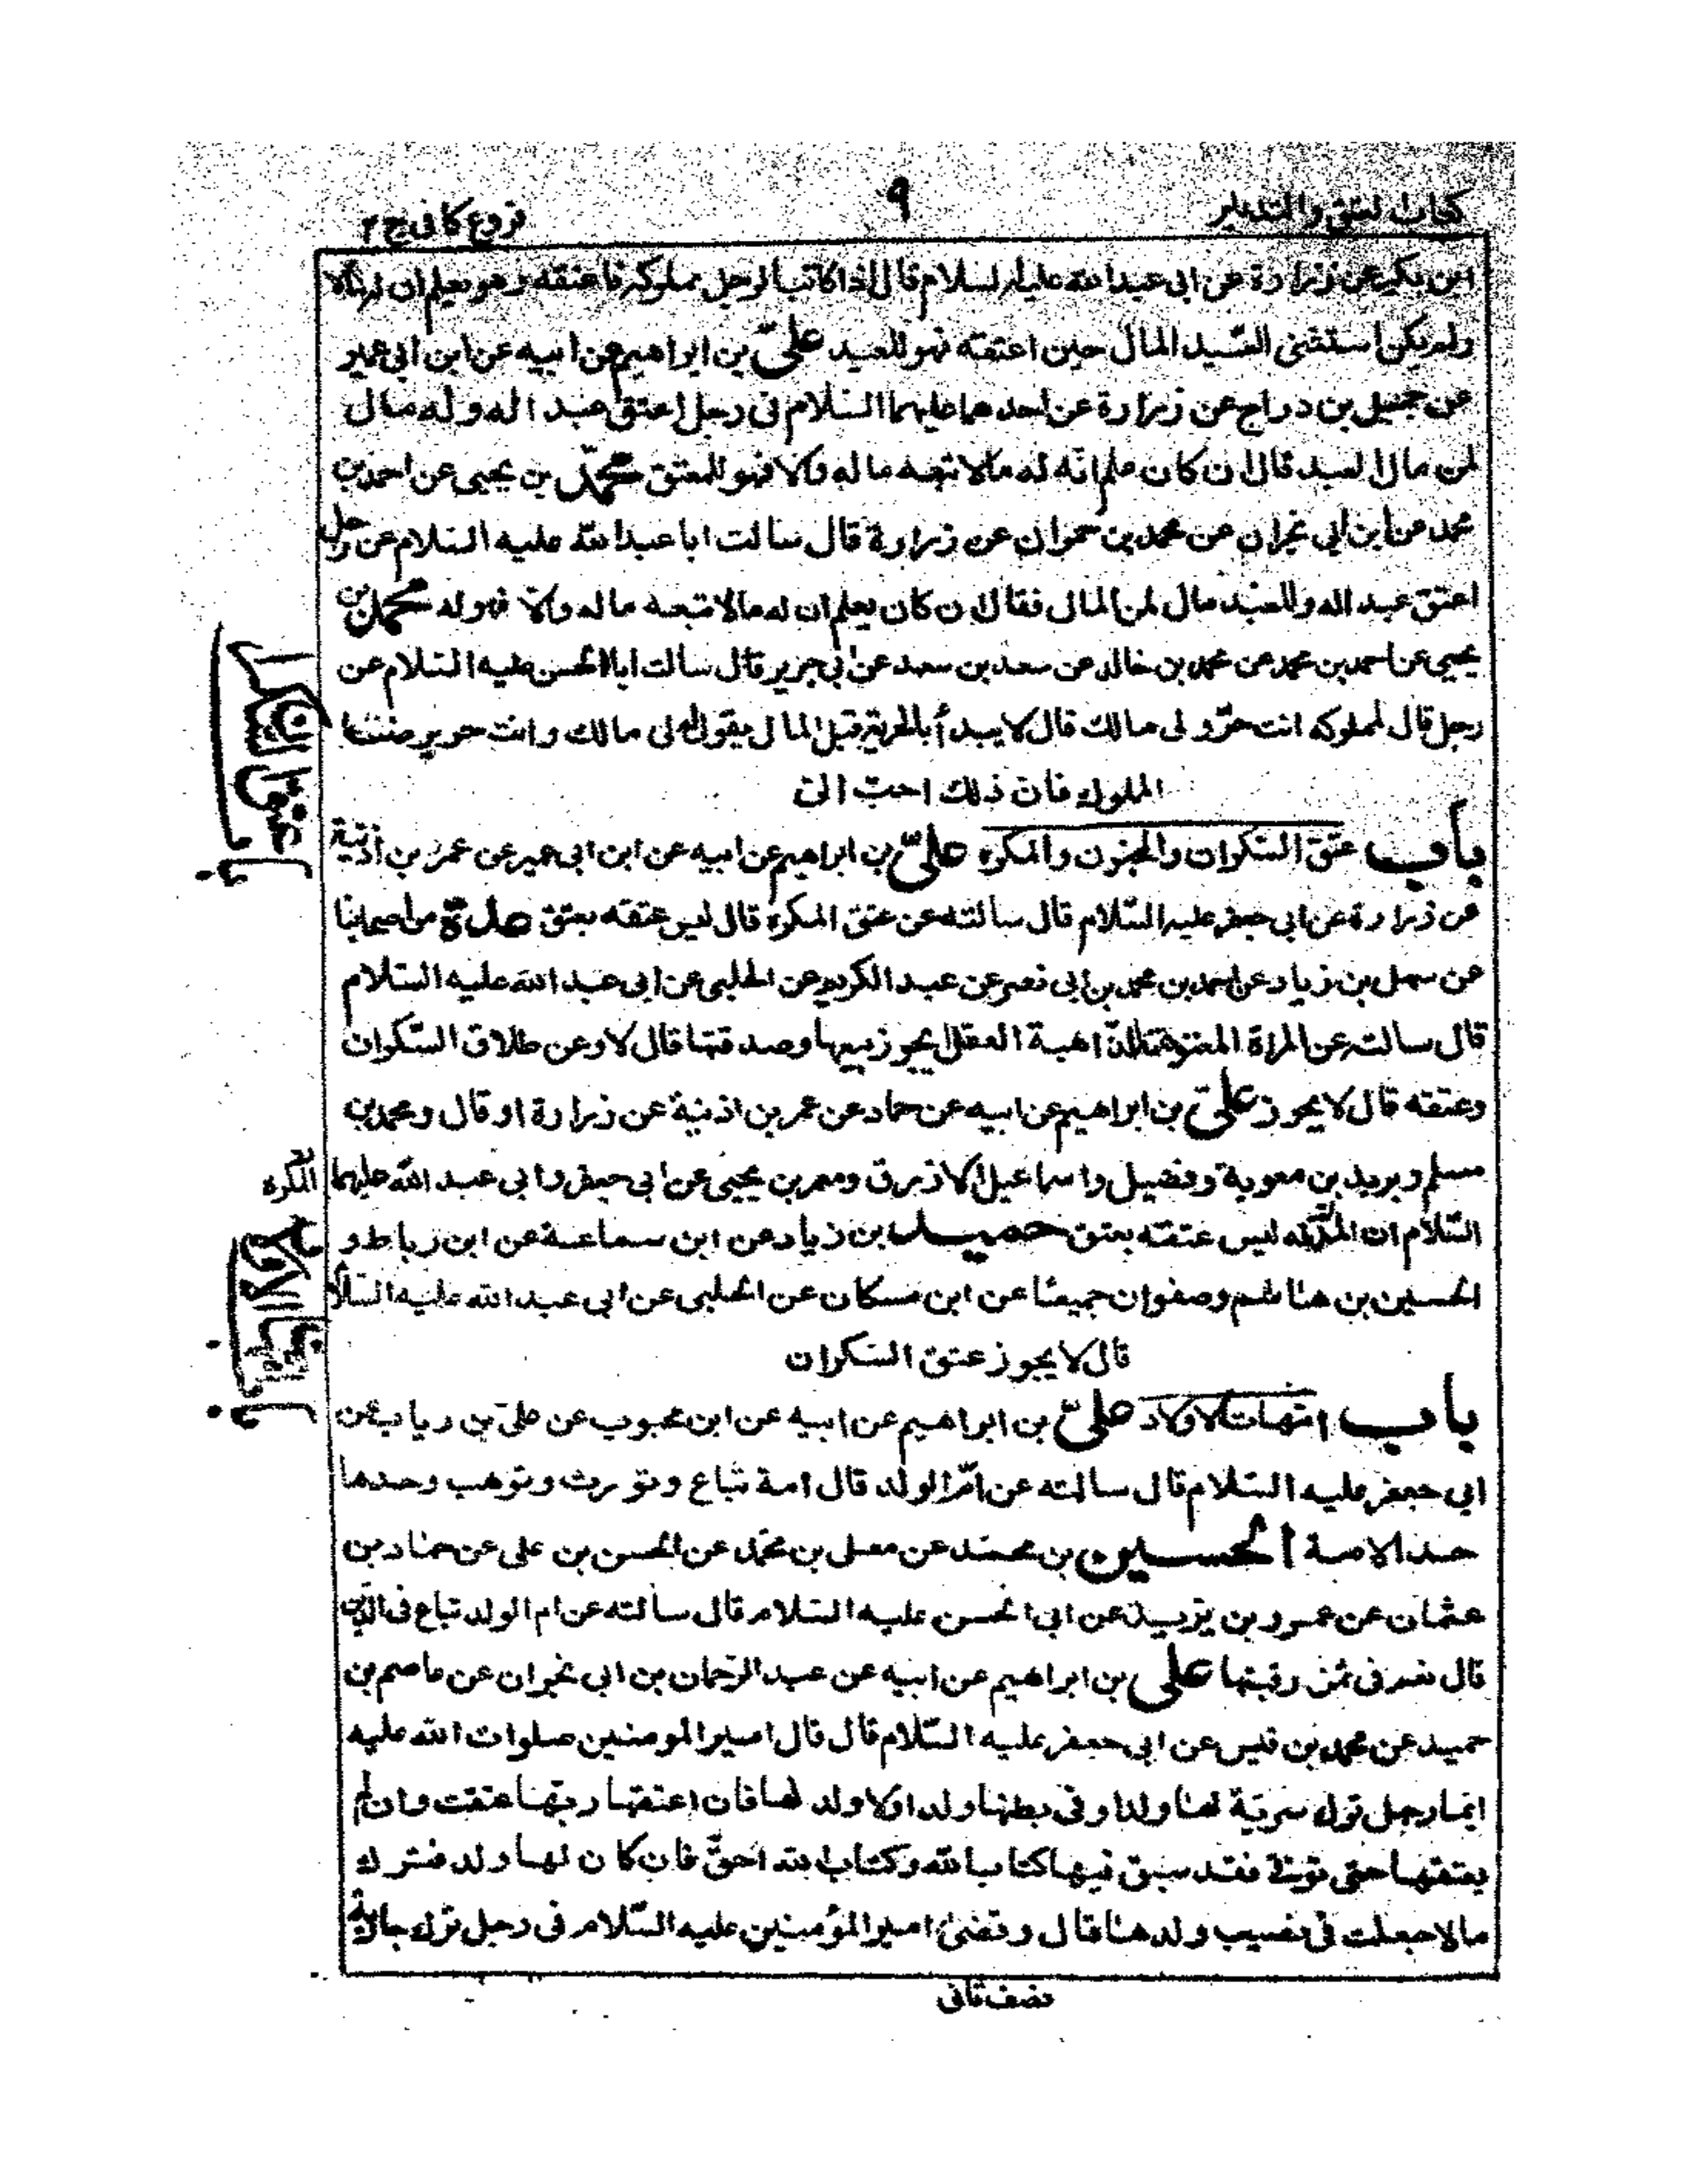 كتاب العتق والتدبير
٩
فروع كافى ج ٣
ابن بكير عن زرارة عن ابى عبد الله عليه السلام قال اذا كاتب الرجل مملوكه فاعتقه وهو يعلم ان له مالا
ولم يكن استثنى السّيد المال حين اعتقه فهو للعبد علىّ بن ابراهيم عن ابيه عن ابن ابى عمير
عن جميل بن دراج عن زرارة عن احدهما عليهما السّلام فى رجل اعتق عبد اله وله مال
لمن مال العبد قال ان كان علم انّه له مالا تبعه ماله والا فهو للمعتق محمّد بن يحيى عن احمد بن
محمد عن ابن ابى نجران عن محمد بن حمران عن زرارة قال سالت ابا عبد الله عليه السّلام عن رجل
اعتق عبد اله وللعبد مال لمن المال فقال ان كان يعلم ان له مالا تبعه ماله والّا فهو له محمد بن
يحيى عن احمد بن محمد عن محمد بن خالد عن سعد بن سعد عن ابى جرير قال سالت ابا الحسن عليه السّلام عن
رجل قال لمملوكه انت حرّ ولى مالك قال لا يبدأ بالحرية قبل المال يقول له لى مالك وانت حر برضا
المملوك فان ذلك احبّ الىّ
باب عتق السّكران والمجنون والمكره علىّ بن ابراهيم عن ابيه عن ابن ابى عمير عن عمر بن اذنية
عن زرارة عن ابى جعفر عليه السّلام قال سالته عن عتق المكره قال ليس عتقه بعتق عدّة من اصحابنا
عن سهل بن زياد عن احمد بن محمد بن ابى نصر عن عبد الكريم عن الحلبى عن ابى عبد الله عليه السّلام
قال سالته عن المراة المعتوهة الذّاهبة العقل ايجوز بيعها وصدقتها قال لا وعن طلاق السّكران
وعتقه قال لا يجوز علىّ بن ابراهيم عن ابيه عن حماد عن عمر بن اذنية عن زرارة او قال ومحمد بن
مسلم وبريد بن معوية وفضيل واسماعيل الازرق ومعمر بن يحيى عن ابى جعفر وابى عبد الله عليهما
المكره
السّلام ان المدلّه ليس عتقه بعتق حميد بن زياد عن ابن سماعة عن ابن رباط و
الحسين بن هاشم وصفوان جميعًا عن ابن مسكان عن الحلبى عن ابى عبد الله عليه السّلا
قال لا يجوز عتق السّكران
باب امّهات الاولاد علىّ بن ابراهيم عن ابيه عن ابن محبوب عن علىّ بن رياب عن
ابي جعفر عليه السّلام قال سالته عن امّ الولد قال امة تباع وتورث وتوهب وحدها
حد الامة الحسين بن محمّد عن معلى بن محمّد عن الحسن بن على عن حمّاد بن
عثمان عن عمرو بن يزيد عن ابى الحسن عليه السّلام قال سالته عن ام الولد تباع فى الدّين
قال نعم فى ثمن رقبتها على بن ابراهيم عن ابيه عن عبد الرّحمان بن ابى نجران عن عاصم بن
حميد عن محمد بن قيس عن ابى جعفر عليه السّلام قال قال امير المومنين صلوات الله عليه
ايّما رجل ترك سريّة لها ولد او فى بطنها ولد او لا ولد لها فان اعتقها ربّها عتقت وان لم
يعتقها حتى توفّى فقد سبق فيها كتاب الله وكتاب الله احقّ فان كان لها ولد فترك
مالا جعلت فى نصيب ولدها قال وقضىٰ امير المؤمنين عليه السّلام فى رجل ترك جارية
نصف ثانى
باب عتق السكران
باب امهات الاولاد